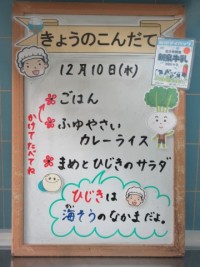 きょうのこんだて
12月10日(水)
ごはん
ふゆやさい
カレーライス
まめとひじきのサラダ
かけてたべてね
ひじきは
海そうのなかまだよ。